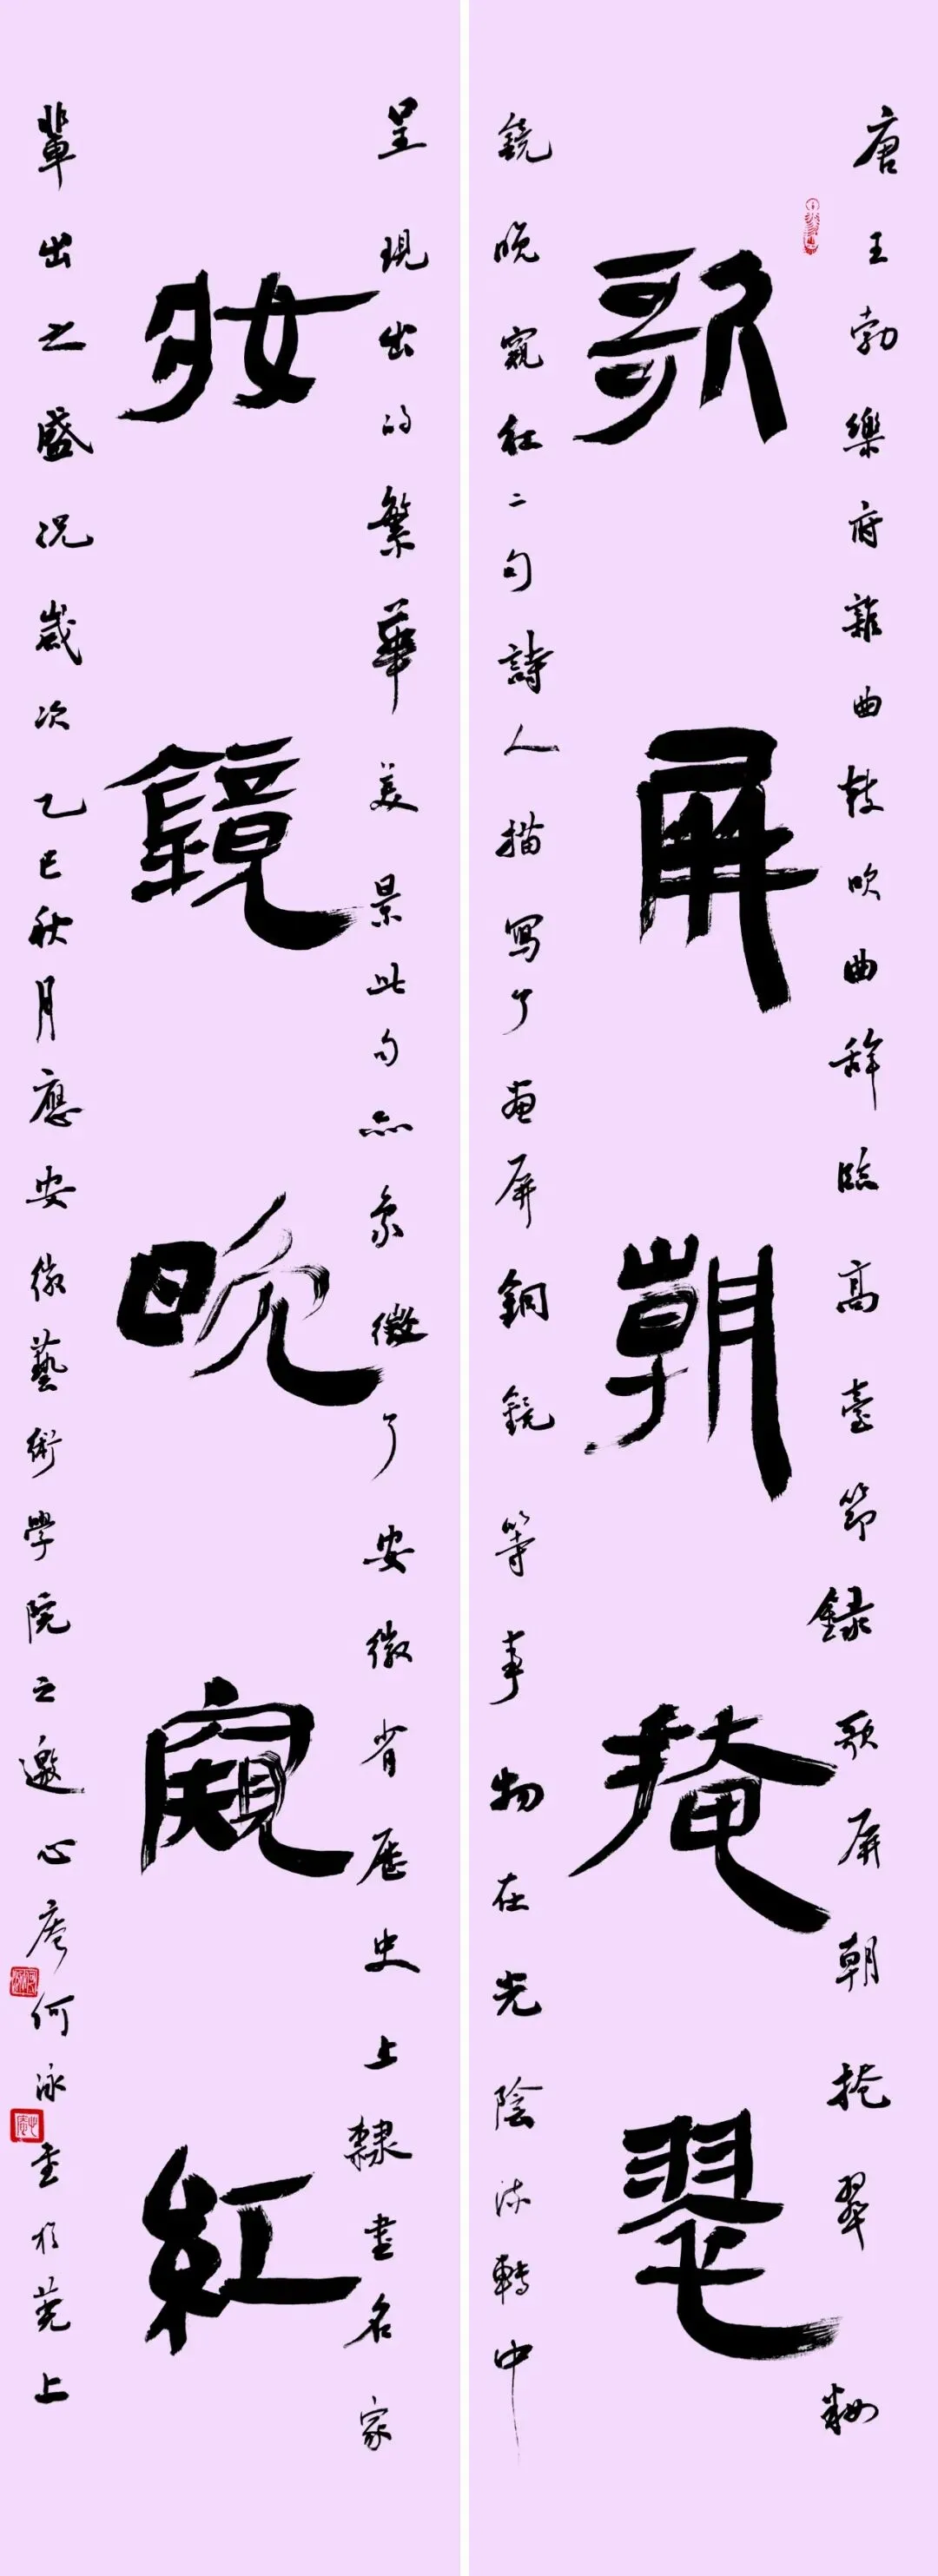 唐王勃樂府雜曲鼓吹曲辞臨高臺節録歌屏朝掩翠粧
歌屏朝掩翠
鏡晚窺红二句詩人描寫了画屏銅鏡等事物在光陰流轉中
呈現出的繁華美景此句亦象徵了安徽省歷史上隸書名家
妝鏡晚窺紅
輩出之盛況歲次乙巳秋月應安徽藝術學院之邀心庵何泳書於蕪上